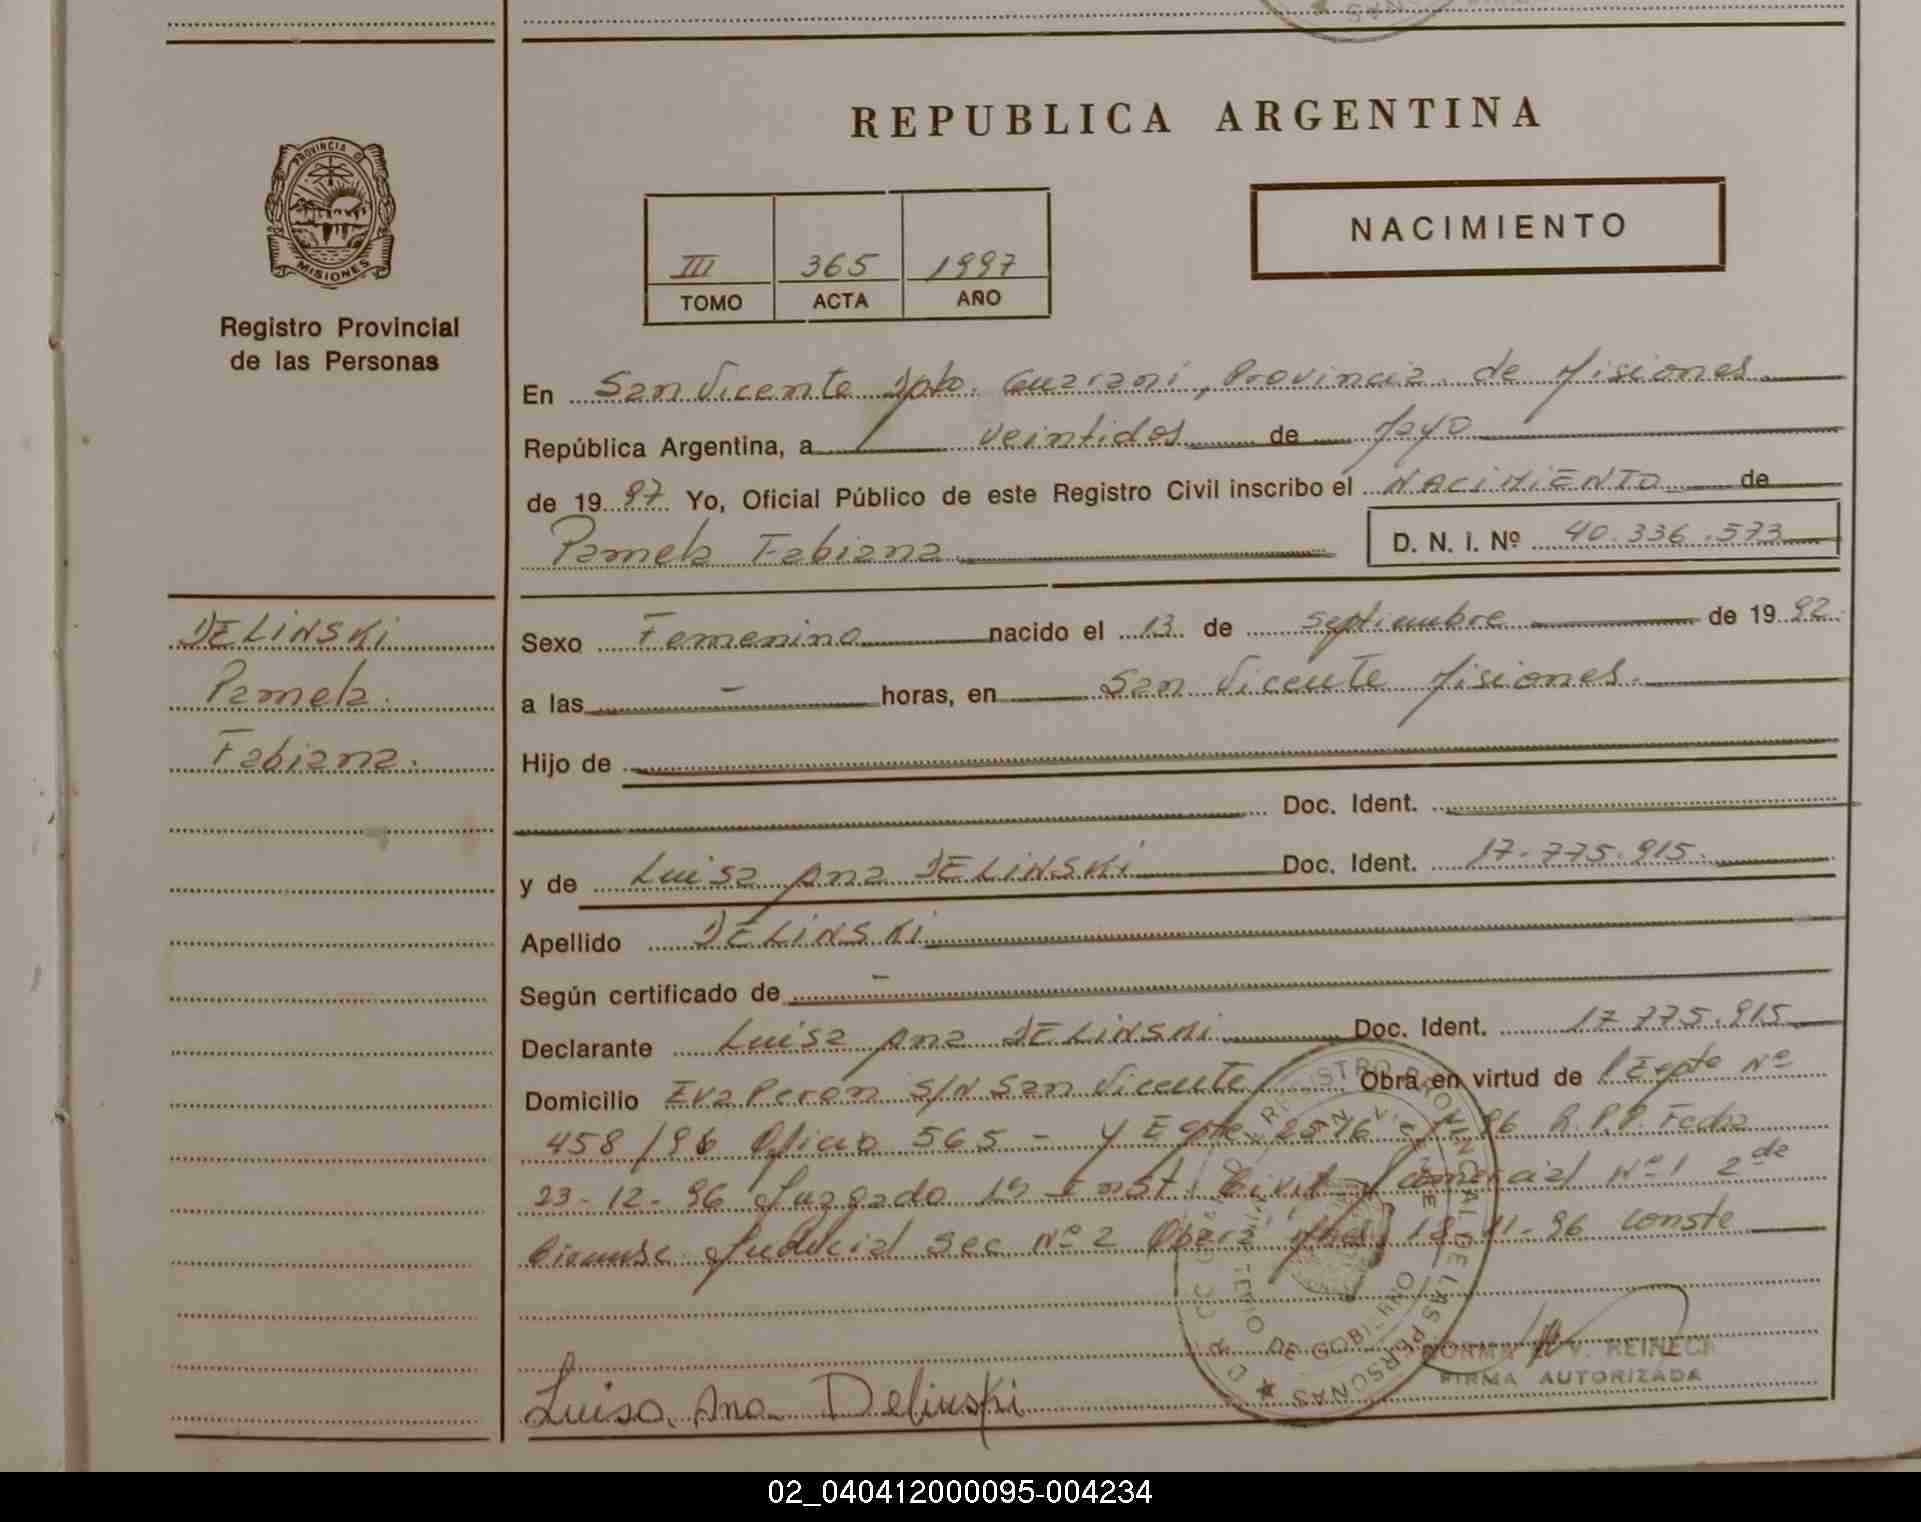 REPUBLICA ARGENTINA
PROVINCIA DE
MISIONES
Registro Provincial
de las Personas
III 365 1997
TOMO ACTA AÑO
NACIMIENTO
En San Vicente Dpto. Guarani, Provincia de Misiones
República Argentina, a veintidos de Mayo
de 1997 Yo, Oficial Público de este Registro Civil inscribo el NACIMIENTO de
Pamela Fabiana D. N. I. Nº 40.336.573
DELINSKI
Pamela
Fabiana.
Sexo Femenino nacido el 13 de Septiembre de 1992.
a las - horas, en San Vicente Misiones.
Hijo de
Doc. Ident.
y de Luisa Ana DELINSKI Doc. Ident. 17.775.915.
Apellido DELINSKI
Según certificado de -
Declarante Luisa Ana DELINSKI Doc. Ident. 17.775.915
Domicilio Eva Peron S/N San Vicente Obra en virtud de Expte Nº
458/96 Oficio 565 - y Expte 96 R.P.P. Fecha
23-12-96 Juzgado 1º Inst. Civil y Comercial Nº1 2da
Judicial Sec Nº 2 Obera Mnes 18-11-96 Conste
REGISTRO PROVINCIAL DE LAS PERSONAS
SAN VICENTE
DE GOBIERNO
NORMA V. REINECK
FIRMA AUTORIZADA
Luisa Ana Delinski
02_040412000095-004234